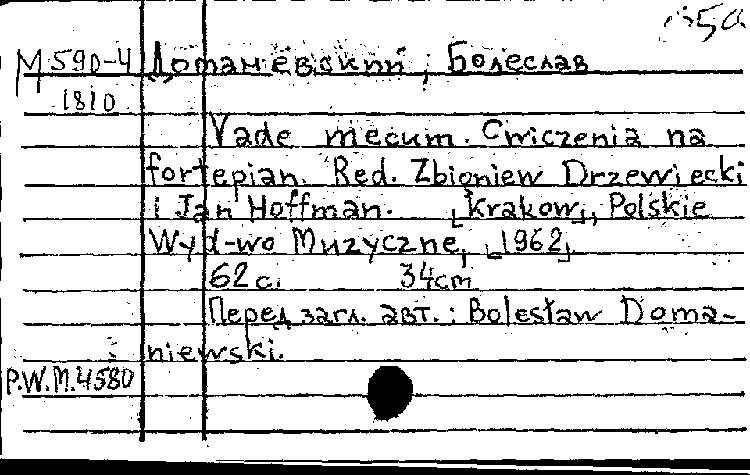 М 590-4 Доманевский, Болеслав
1810
Vade mecum. Cwiczenia na
fortepian. Red. Zbigniew Drzewiecki
i Jan Hoffman. [Krakow], Polskie
Wyd-wo Muzyczne, [1962]
62 с. 34cm
Перед загл. авт.: Bolesław Doma-
niewski.
P.W.M.4580